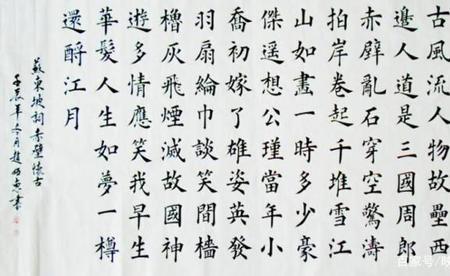 古風流人物故壘西
邊人道是三國周郎
赤壁亂石穿空驚濤
拍岸卷起千堆雪江
山如畫一時多少豪
傑遙想公瑾當年小
喬初嫁了雄姿英發
羽扇綸巾談笑間檣
櫓灰飛煙滅故國神
遊多情應笑我早生
華髮人生如夢一樽
還酹江月
蘇東坡詞赤壁懷古
壬辰年冬月趙書
百家号/